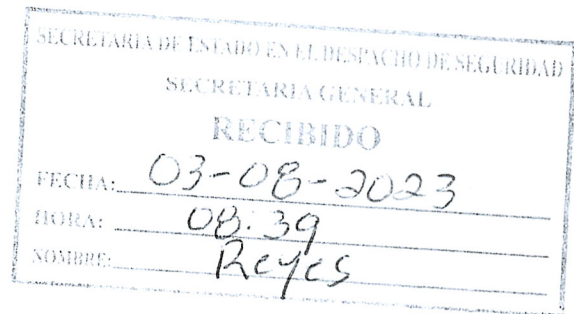 SECRETARIA DE ESTADO EN EL DESPACHO DE SEGURIDAD
SECRETARIA GENERAL
RECIBIDO
FECHA: 03-08-2023
HORA: 08:39
NOMBRE: Reyes